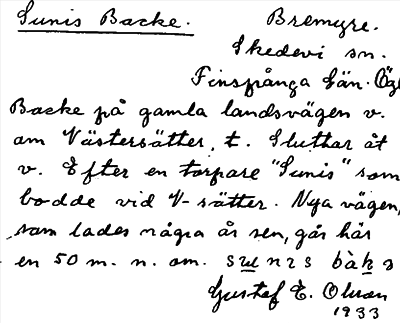 Sunis Backe. Bremyre.
Skedevi sn.
Finspånga län. Ögl
Backe på gamla landsvägen v.
om Västersätter, t. Sluttar åt
v. Efter en torpare "Sunis" som
bodde vid V-sätter. Nya vägen,
som lades några år sen, går här
en 50 m. n. om.
Gustaf E. Olsson
1933